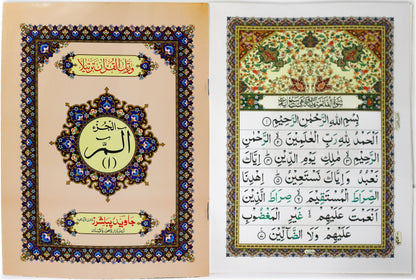 ورتل القرآن ترتيلا
الجزء
الٓمّٓ
(۱)
جاوید پبلشرز
بِسْمِ اللهِ الرَّحْمٰنِ الرَّحِيْمِ ۝۱
اَلْحَمْدُ لِلّٰهِ رَبِّ الْعٰلَمِيْنَ ۝۲ الرَّحْمٰنِ
الرَّحِيْمِ ۝۳ مٰلِكِ يَوْمِ الدِّيْنِ ۝۴ اِيَّاكَ
نَعْبُدُ وَاِيَّاكَ نَسْتَعِيْنُ ۝۵ اِهْدِنَا
الصِّرَاطَ الْمُسْتَقِيْمَ ۝۶ صِرَاطَ الَّذِيْنَ
اَنْعَمْتَ عَلَيْهِمْ غَيْرِ الْمَغْضُوْبِ
عَلَيْهِمْ وَلَا الضَّآلِّيْنَ ۝۷